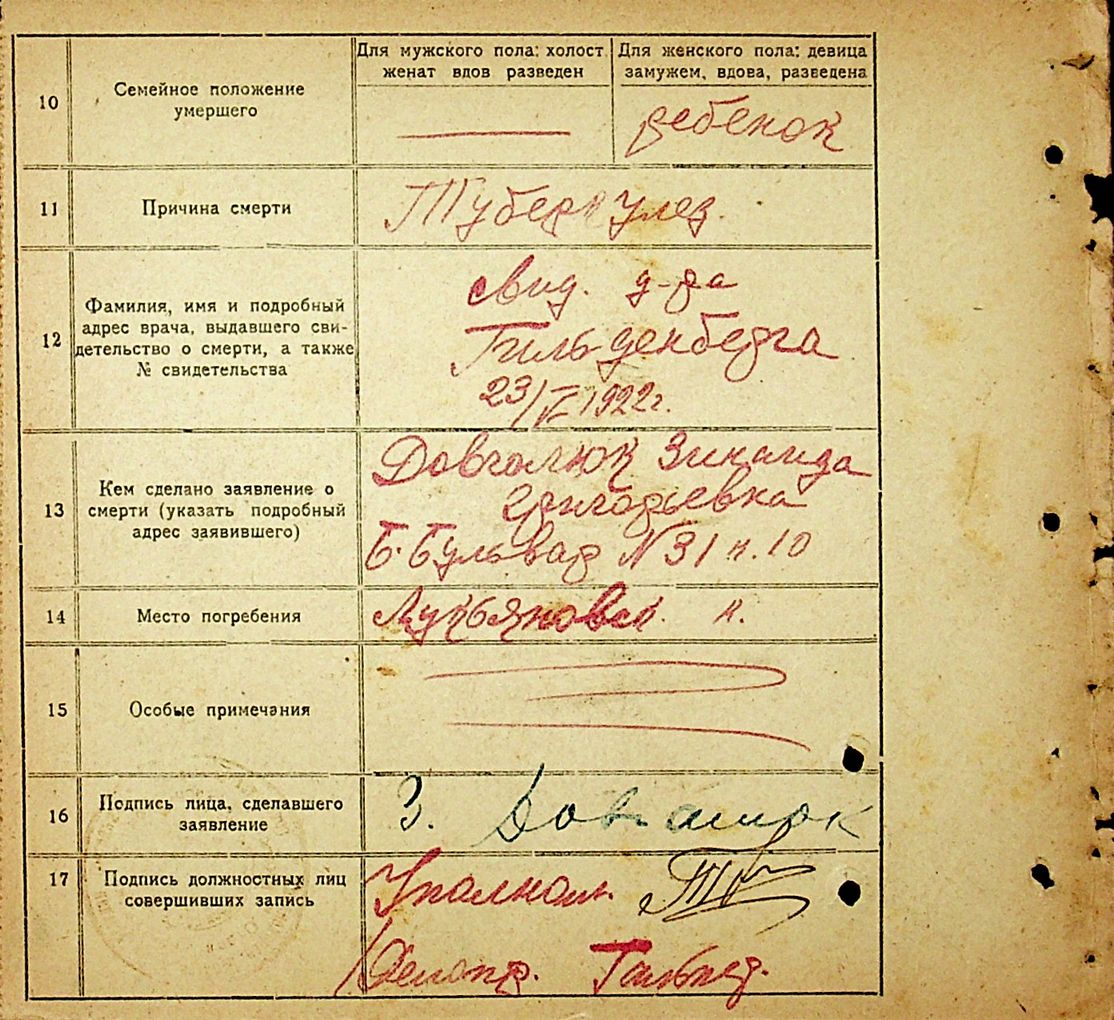 10
Семейное положение
умершего
Для мужского пола: холост
женат вдов разведен
Для женского пола: девица
замужем, вдова, разведена
ребенок
11
Причина смерти
Туберкулез.
12
Фамилия, имя и подробный
адрес врача, выдавшего сви-
детельство о смерти, а также
№ свидетельства
свид. д-ра
Гильденберга
23/V 1922г.
13
Кем сделано заявление о
смерти (указать подробный
адрес заявившего)
Довгалюк Зинаида
Григорьевна
Б. Бульвар N 31 к. 10
14
Место погребения
Лукьяновск. к.
15
Особые примечания
16
Подпись лица, сделавшего
заявление
З. Довгалюк
17
Подпись должностных лиц
совершивших запись
Уполном.
Делопр.